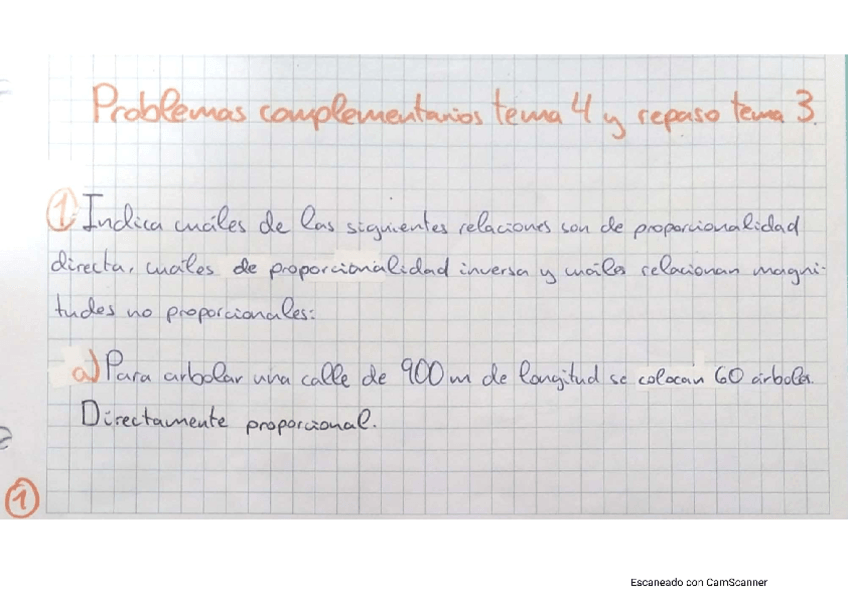 Problemas complementarios tema 4 y repaso tema 3.
① Indica cuáles de las siguientes relaciones son de proporcionalidad
directa, cuáles de proporcionalidad inversa y cuáles relacionan magni-
tudes no proporcionales:
a) Para arbolar una calle de 900 m de longitud se colocan 60 árboles.
Directamente proporcional.
①
Escaneado con CamScanner